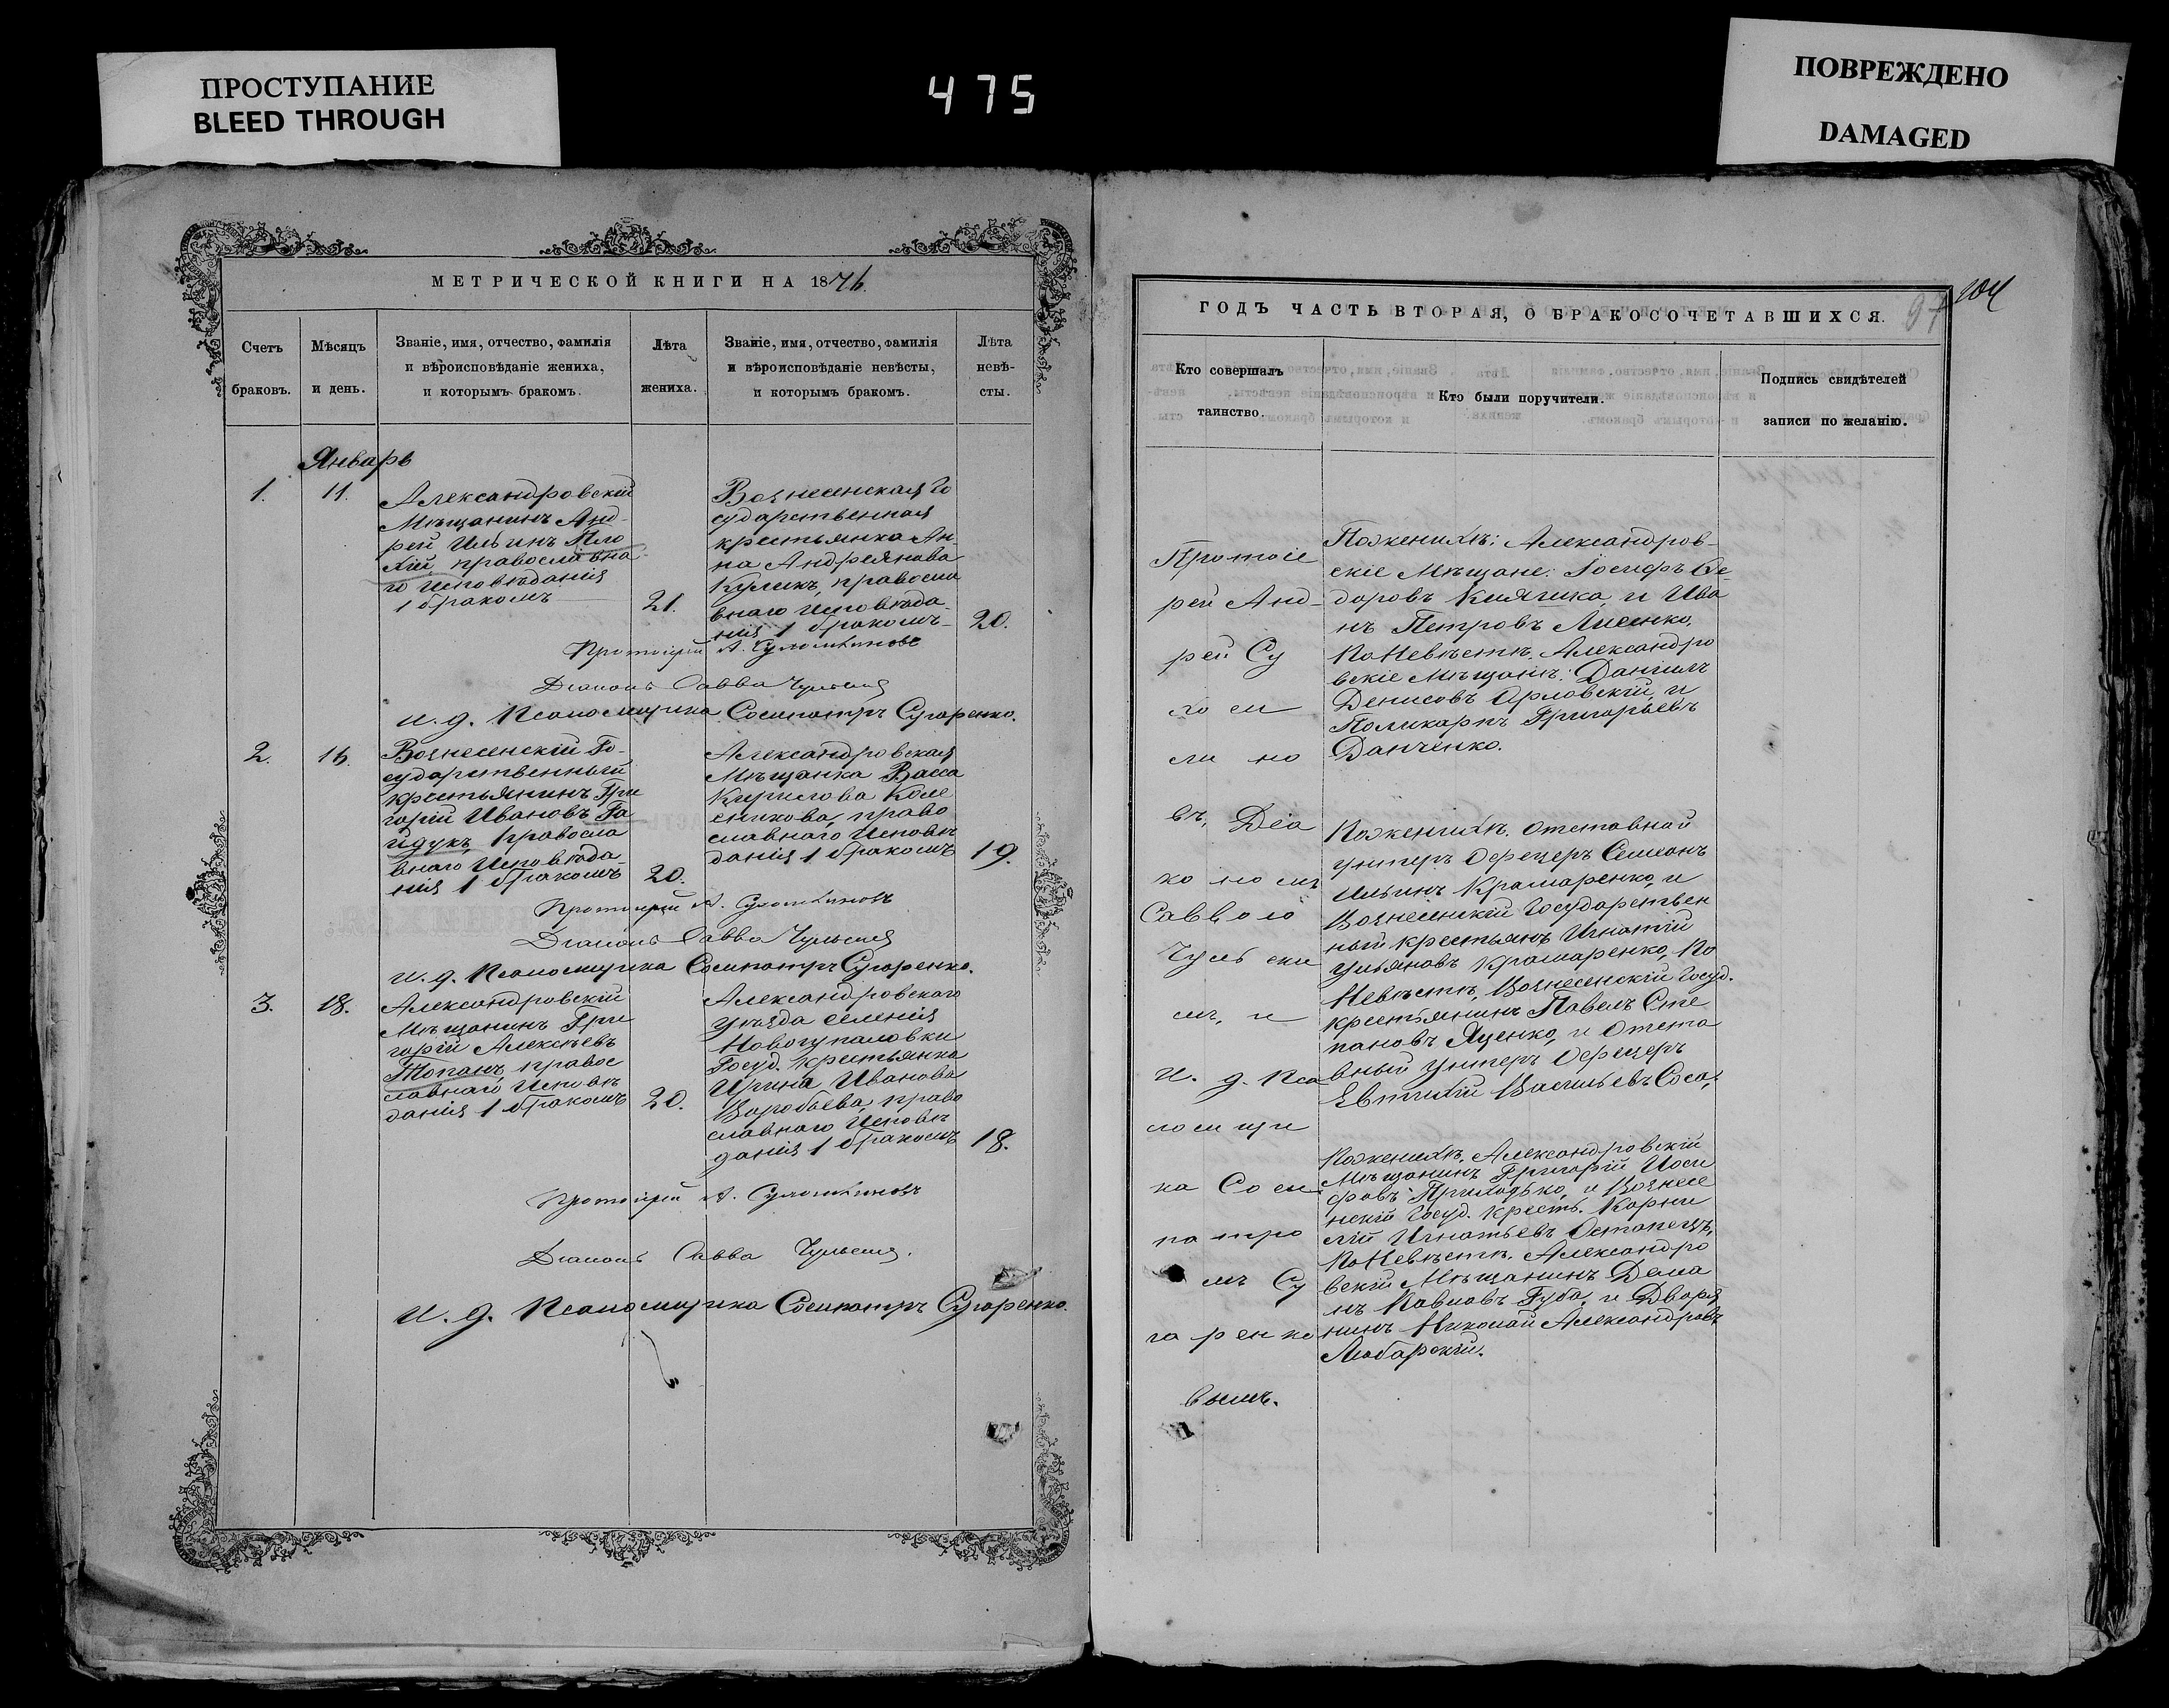 ПРОСТУПАНИЕ
BLEED THROUGH
475
ПОВРЕЖДЕНО
DAMAGED
МЕТРИЧЕСКОЙ КНИГИ НА 1876.
Счетъ
браковъ.
Мѣсяцъ
и день.
Званіе, имя, отчество, фамилія
и вѣроисповѣданіе жениха,
и которымъ бракомъ.
Лѣта
жениха.
Званіе, имя, отчество, фамилія
и вѣроисповѣданіе невѣсты,
и которымъ бракомъ.
Лѣта
невѣ-
сты.
Январь
1.
11.
Александровскій
Мѣщанинъ Анд-
рей Ильинъ Пло
хій, православна
го исповѣданія
1 бракомъ
21.
Вознесенская Го
сударственная
крестьянка Ан-
на Андреянова
Куликъ, правосла
внаго исповѣда-
нія 1 бракомъ
20.
Протоіерей А.
Діаконъ Савва Чульскій
и. д. Псаломщика Сосипатръ Сугаренко.
2.
16.
Вознесенскій Го-
сударственный
крестьянинъ Гри
горій Ивановъ Га
йдукъ, правосла
внаго исповѣда-
нія 1 бракомъ
20.
Александровская
Мѣщанка Васса
Кирилова Коле
сникова, право
славнаго исповѣ
данія 1 бракомъ
19.
Протоіерей А.
Діаконъ Савва Чульскій
и. д. Псаломщика Сосипатръ Сугаренко.
3.
18.
Александровскій
Мѣщанинъ Гри
горій Алексѣевъ
Топанъ, правос
славнаго исповѣ
данія 1 бракомъ
20.
Александровскаго
уѣзда селенія
Новогупаловки
Госуд. крестьянка
Ирина Иванова
Воробьева, право
славнаго исповѣ
данія 1 бракомъ
18.
Протоіерей А.
Діаконъ Савва Чульскій.
и. д. Псаломщика Сосипатръ Сугаренко.
ГОДЪ ЧАСТЬ ВТОРАЯ, О БРАКОСОЧЕТАВШИХСЯ.
97
104
Кто совершалъ
таинство.
Кто были поручители.
Подпись свидѣтелей
записи по желанію.
Протоіе
рей Анд-
рей Су
ло ми
ли но
въ, Діа
ко номъ
Саввою
Чульски
мъ, и
и. д. Пса
ломщи
ка Соси
патро
мъ Су
гаренко
вымъ.
По женихѣ: Александров-
скіе Мѣщане: Іосифъ Ѳе-
доровъ Княжка, и Ива
нъ Петровъ Лисенко.
По Невѣстѣ. Александро
вскіе Мѣщане: Даніилъ
Денисовъ Орловскій, и
Поликарпъ Григорьевъ
Данченко.
По женихѣ. Отставной
унтеръ Офецеръ Семеонъ
Ильинъ Крамаренко, и
Вознесенскій Государствен
ный крестьянъ Игнатій
Ульяновъ Крамаренко, По
Невѣстѣ, Вознесенскій Госуд.
крестьянинъ Павелъ Сте
пановъ Яценко, и Отста
вный Унтеръ Офецеръ
Евтихій Васильевъ Соса.
По женихѣ. Александровскій
Мѣщанинъ Григорій Иоси
фовъ Приходько, и Вознесе
нскій Госуд. крестъ. Корни
лій Игнатьевъ Остапецъ,
По Невѣстѣ. Александро
вскій Мѣщанинъ Деми
нъ Павловъ Губа, и Дворя
нинъ Николай Александровъ
Любарскій.